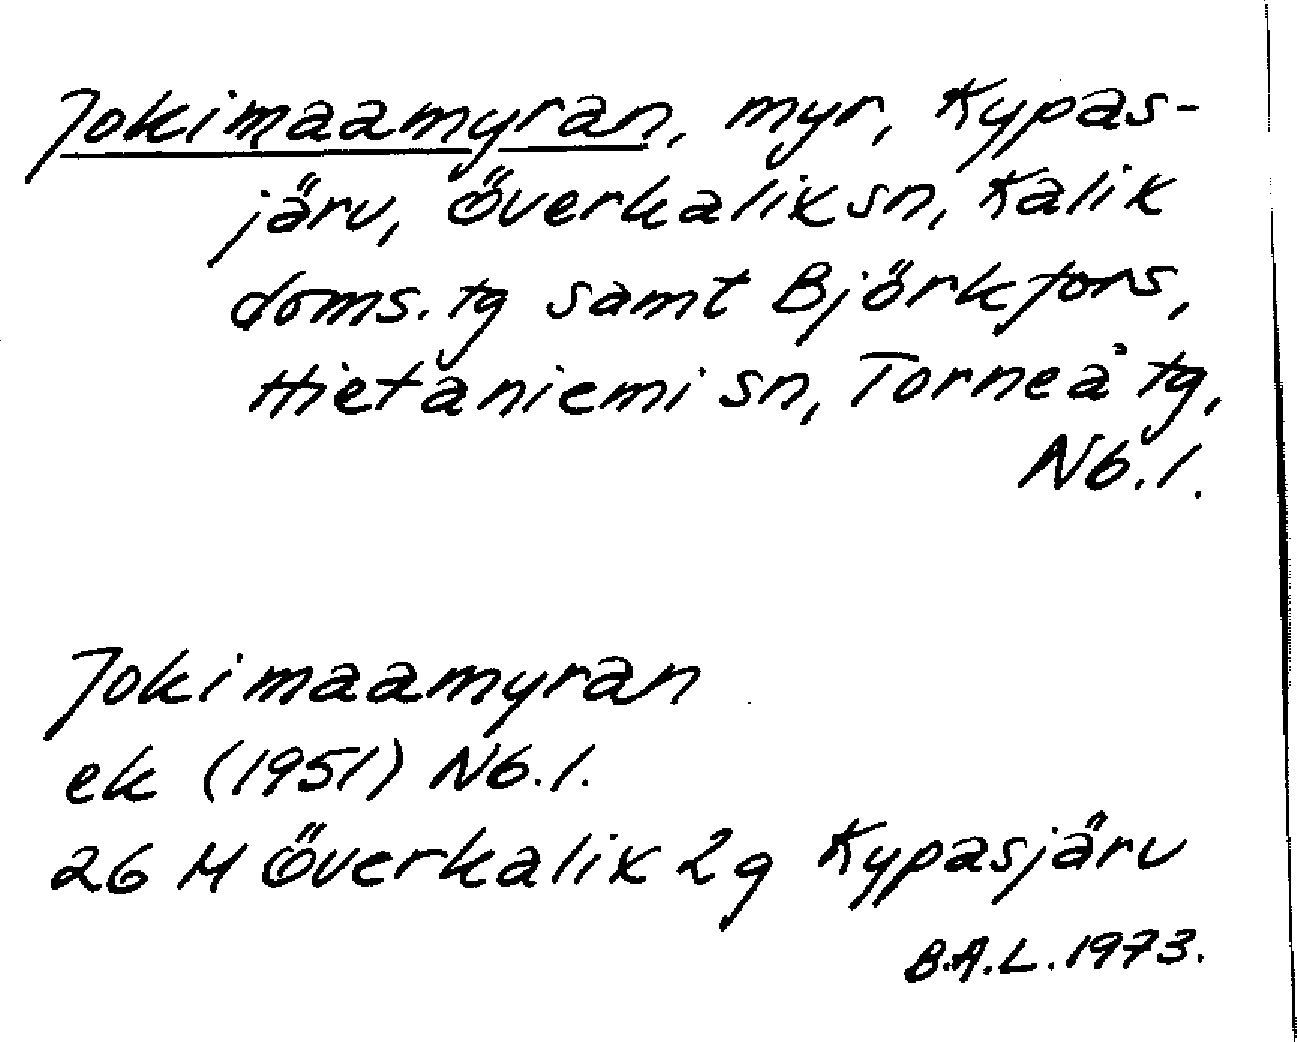 Jokimaamyran, myr, Kypas-
järv, Överkalix sn, Kalix
doms. tg samt Björkfors,
Hietaniemi sn, Torneå tg,
Nb. l.
Jokimaamyran
ek (1951) Nb. l.
26 M Överkalix 2g Kypasjärv
B.A.L. 1973.